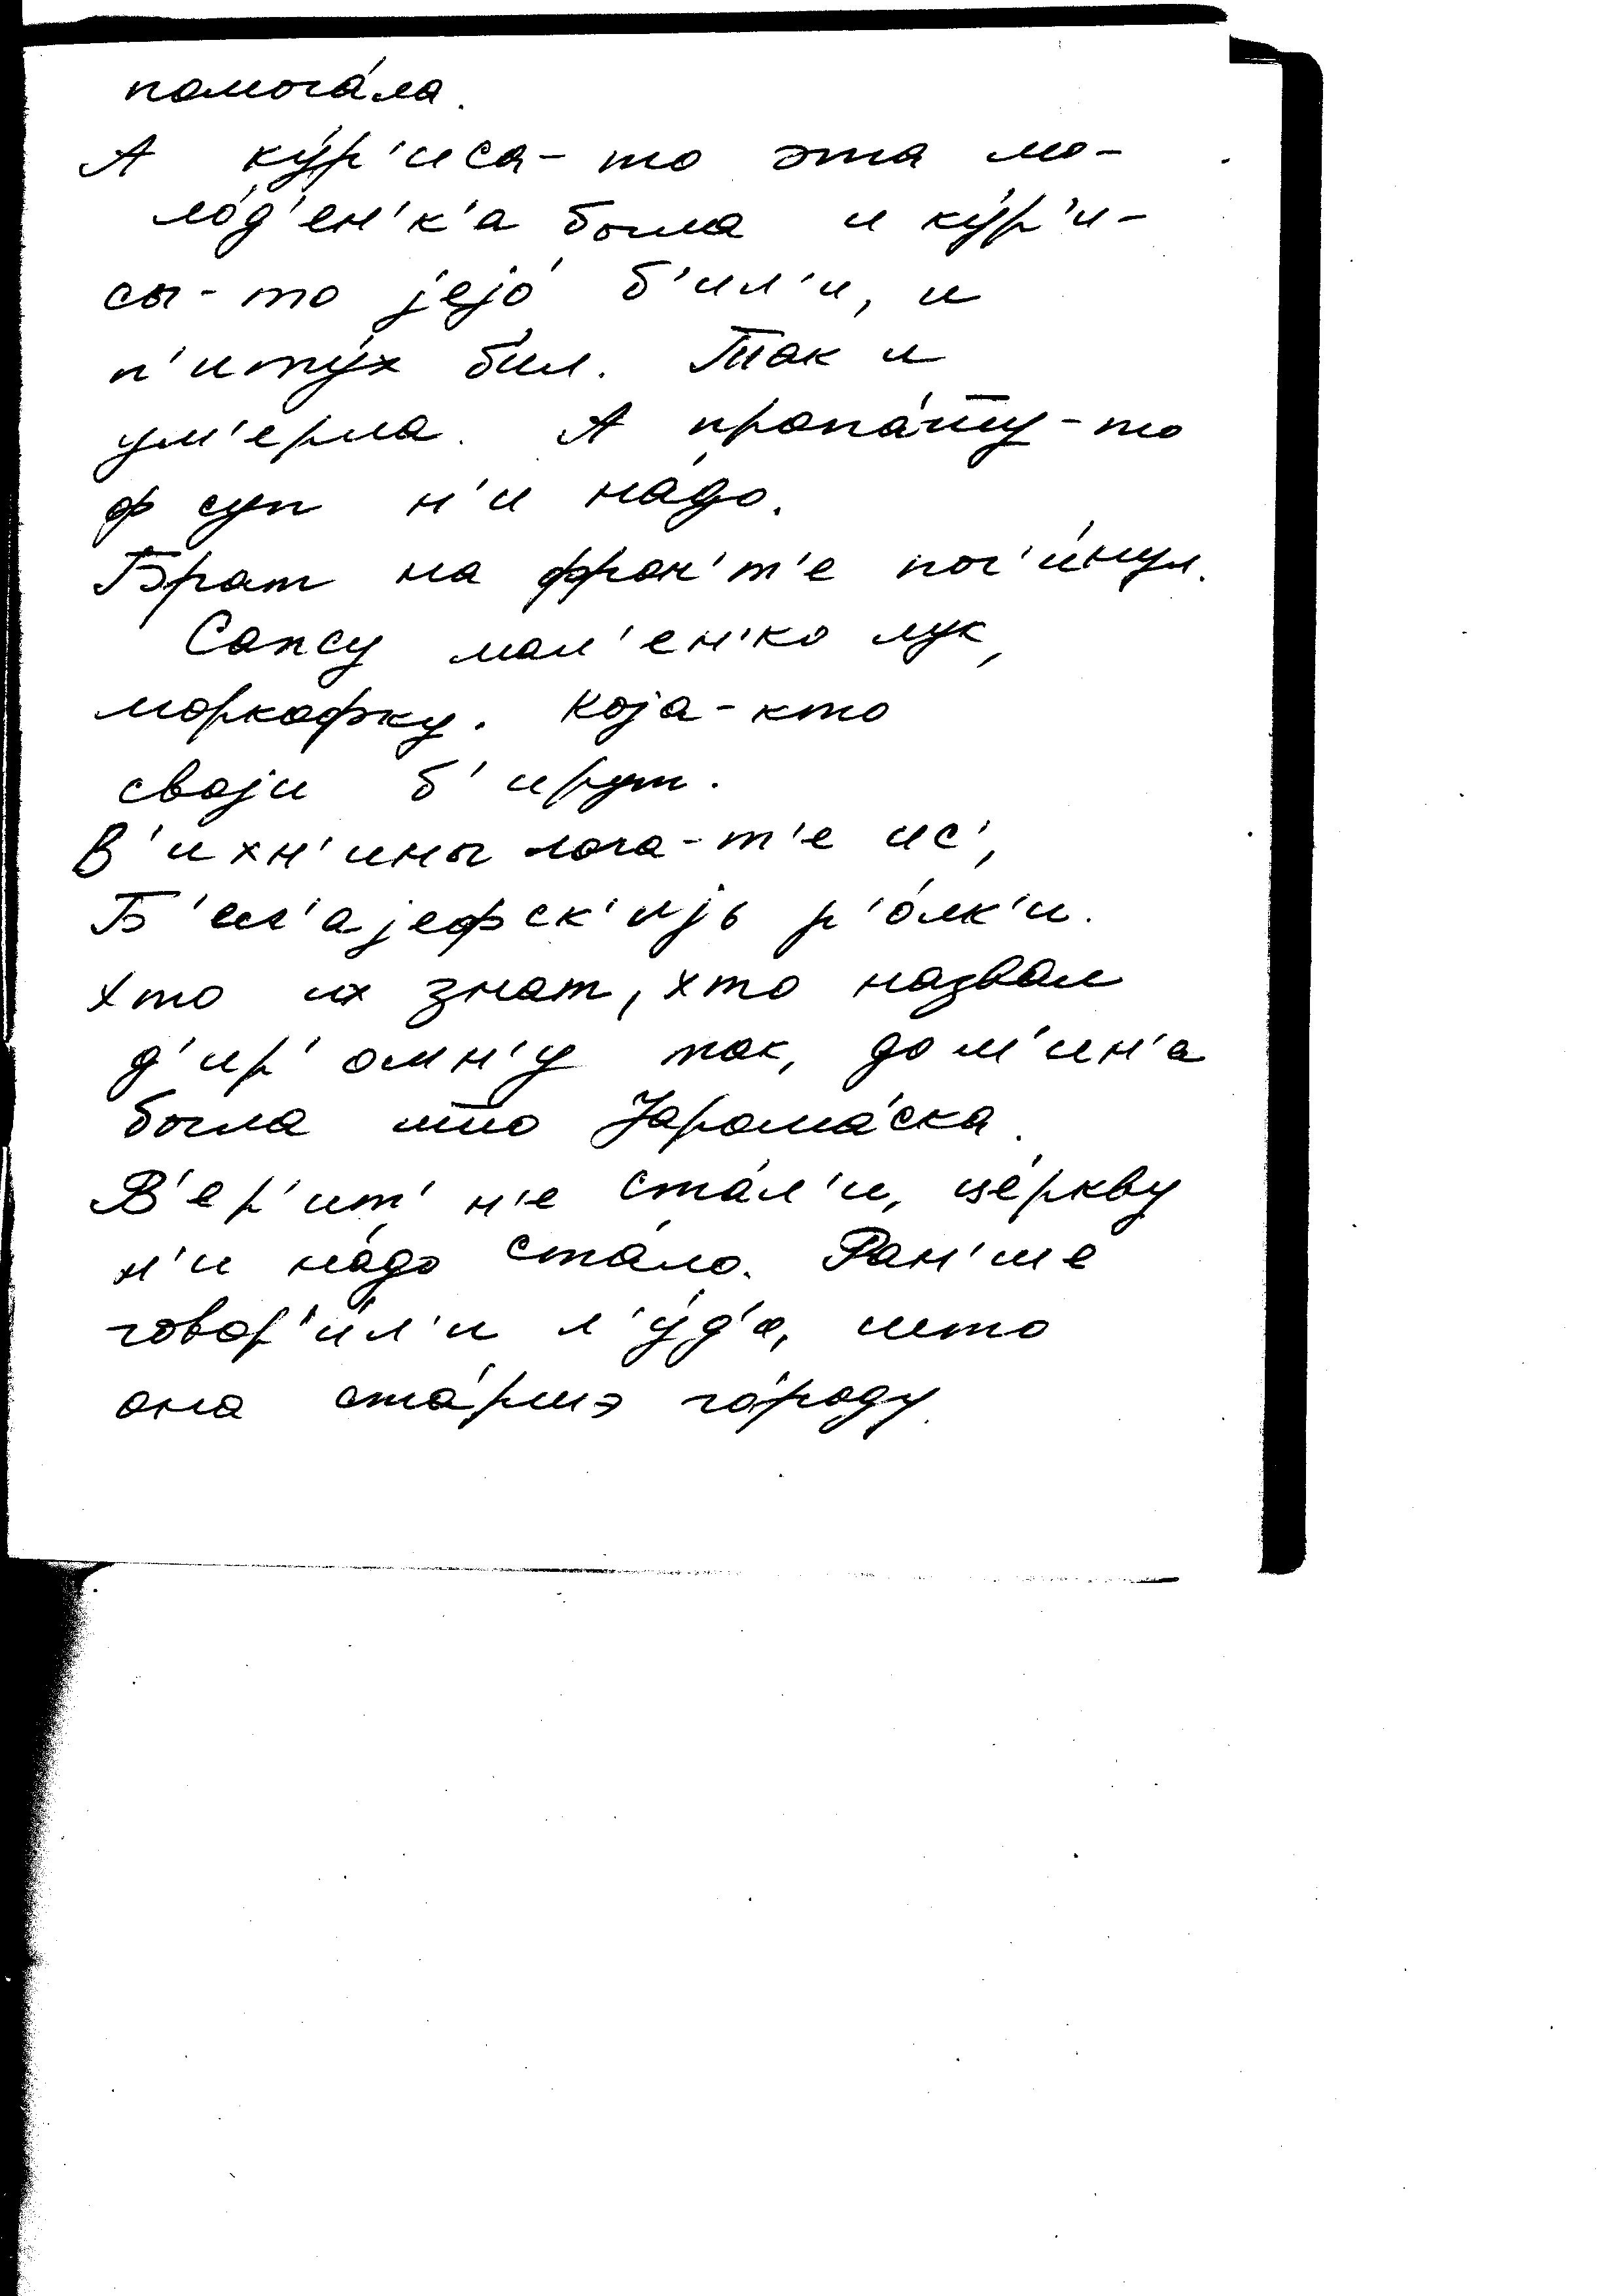 помога́ла.
А ку́р'иса-то эта мо-
ло́д'ен'к'а была и ку́р'и-
сы-то jejо́ б'ил'и, и
п'иту́х б'ил. Так и
ум'ерла. А
ф суп н'и на́до.
Брат на фрон'т'е пог'и́нул.
Сапсу мал'ен'ко лук,
моркофку. Коja-кто
своjи б'ирут.
В'ихн'ины лога-т'е ис',
р'о́лк'и.
Хто их знат, хто назвал
д'ир'омн'у так, дол'ин'а
была што Jарома́ска.
В'ер'ит' н'е ста́л'и, це́ркву
н'и на́до ста́ло. Ран'ше
говор'и́л'и л'у́д'и, што
она ста́ршэ го́роду.